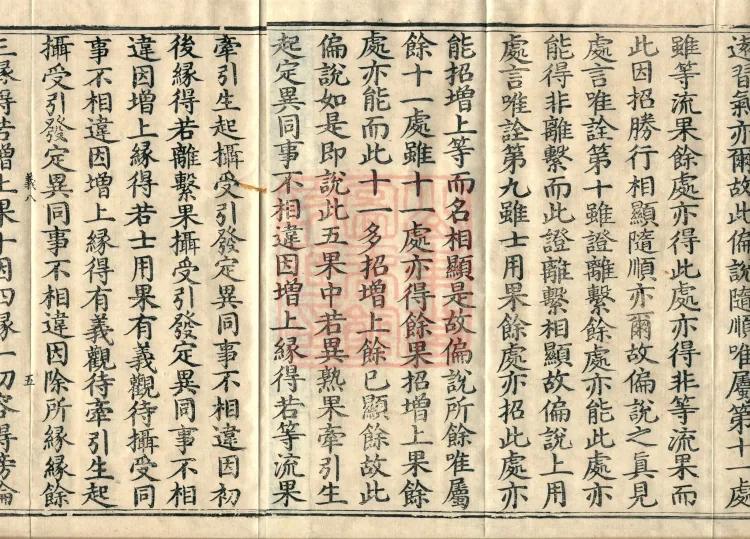 遠習氣亦爾故此偏說隨順唯屬第十一處
雖等流果餘處亦得此處亦得非等流果而
此因招勝行相顯隨順亦爾故偏說之真見
處言唯詮第十雖證離繫餘處亦能此處亦
能得非離繫而此證離繫相顯故偏說上用
處言唯詮第九雖士用果餘處亦招此處亦
能招增上等而名相顯是故偏說所餘唯屬
餘十一處雖十一處亦得餘果招增上果餘
處亦能而此十一多招增上餘已顯餘故此
偏說如是即說此五果中若異熟果牽引生
起定異同事不相違因增上緣得若等流果
牽引生起攝受引發定異同事不相違因初
後緣得若離繫果攝受引發定異同事不相
違因增上緣得若士用果有義觀待攝受同
事不相違因增上緣得有義觀待牽引生起
攝受引發定異同事不相違因除所緣緣餘
義八
五
三緣得若增上果十因四緣一切容得傍論